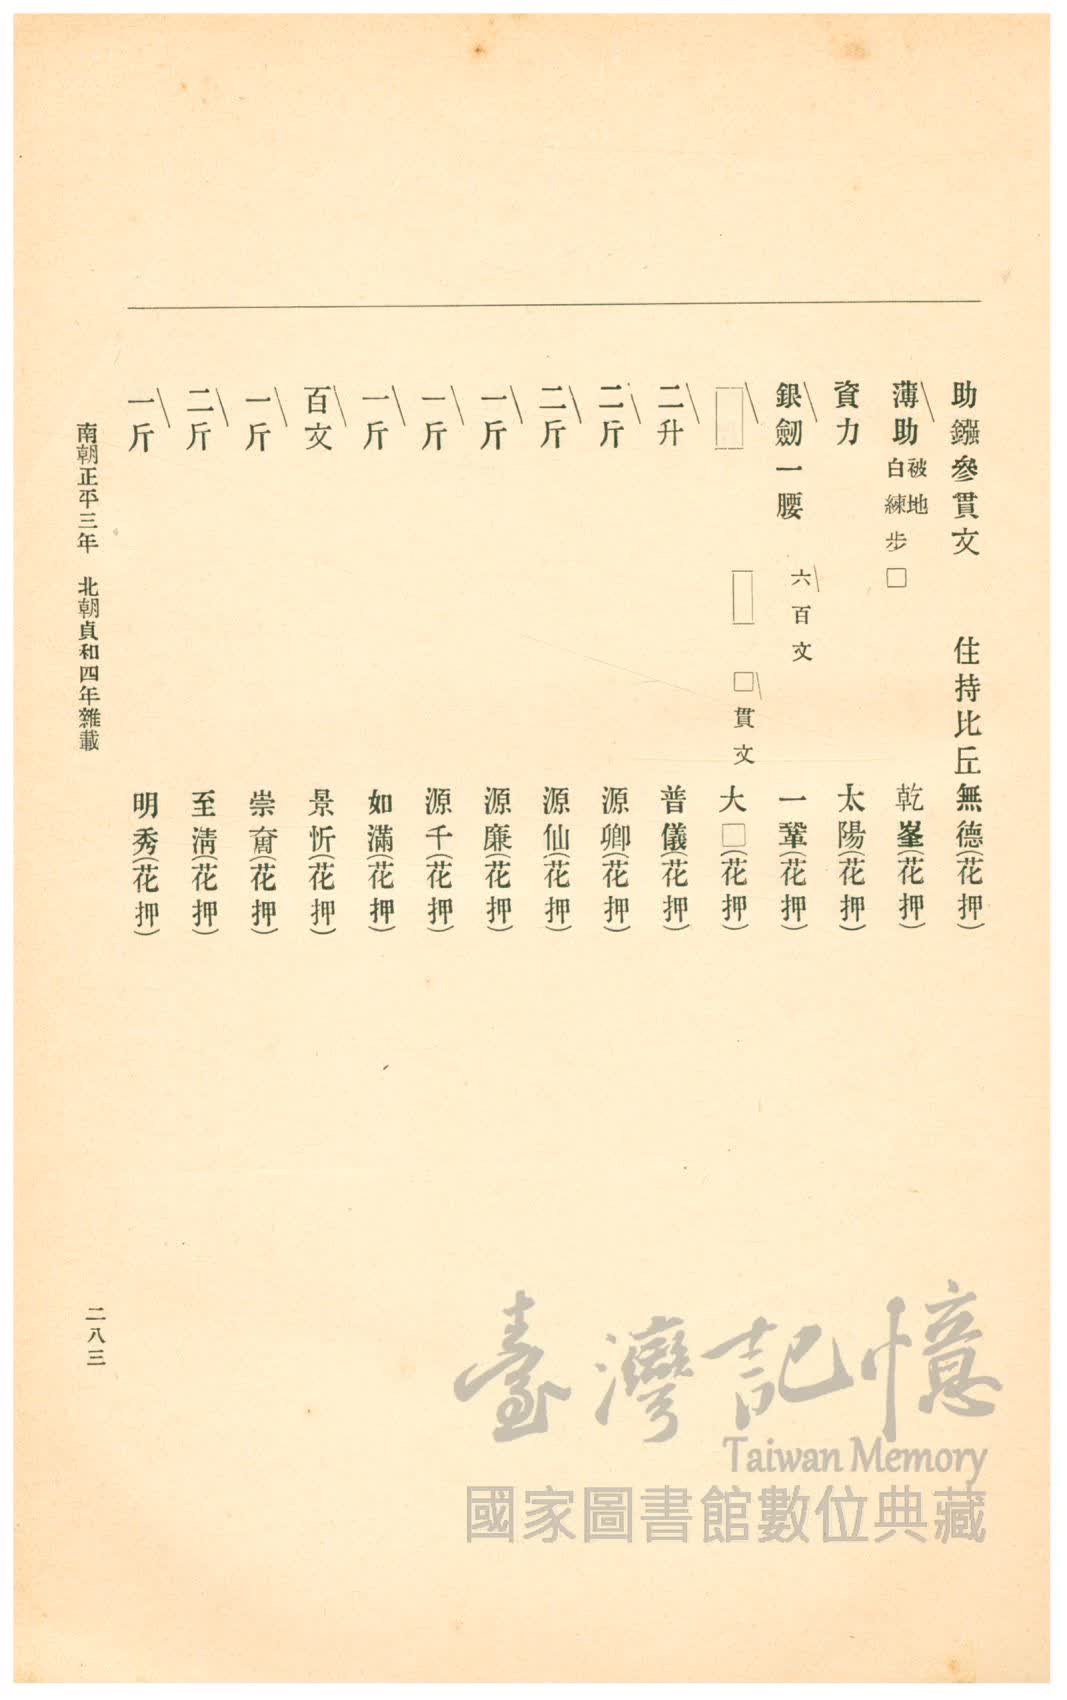 助鏹參貫文　住持比丘無德(花押)
薄助 被地白練步□　乾峯(花押)
資力　太陽(花押)
銀劒一腰　六百文　一鞏(花押)
□　□　□貫文　大□(花押)
二升　普儀(花押)
二斤　源卿(花押)
二斤　源仙(花押)
一斤　源廉(花押)
一斤　源千(花押)
一斤　如滿(花押)
百文　景忻(花押)
一斤　崇奝(花押)
二斤　至淸(花押)
一斤　明秀(花押)
南朝正平三年　北朝貞和四年雜載
二八三
臺灣記憶
Taiwan Memory
國家圖書館數位典藏